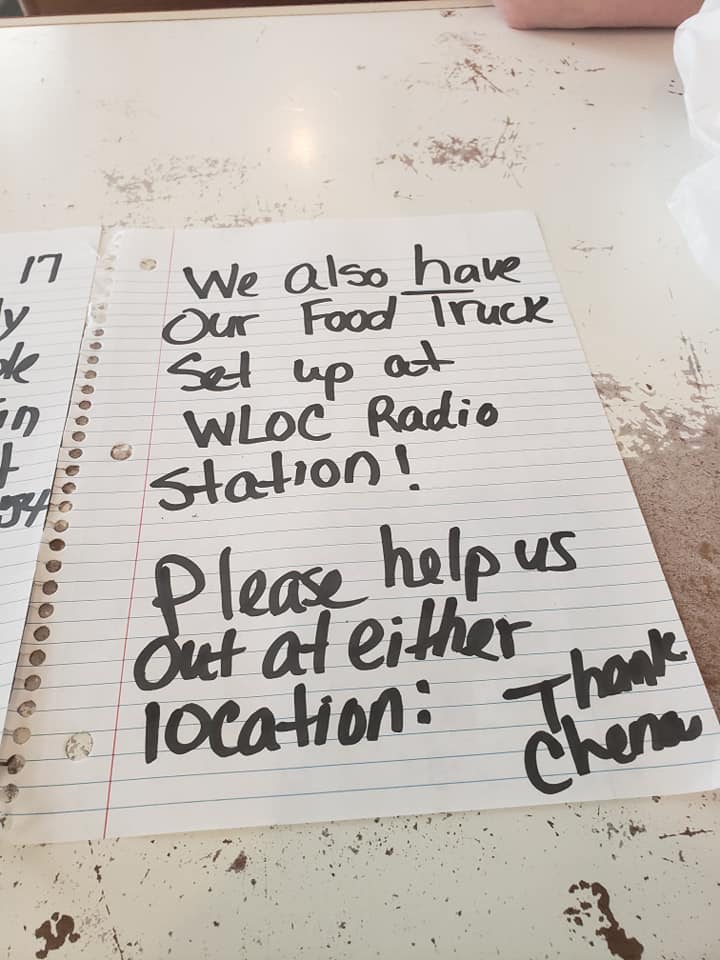 17
We also have
Our Food Truck
Set up at
WLOC Radio
Station!
Please help us
out at either
location:
Thank